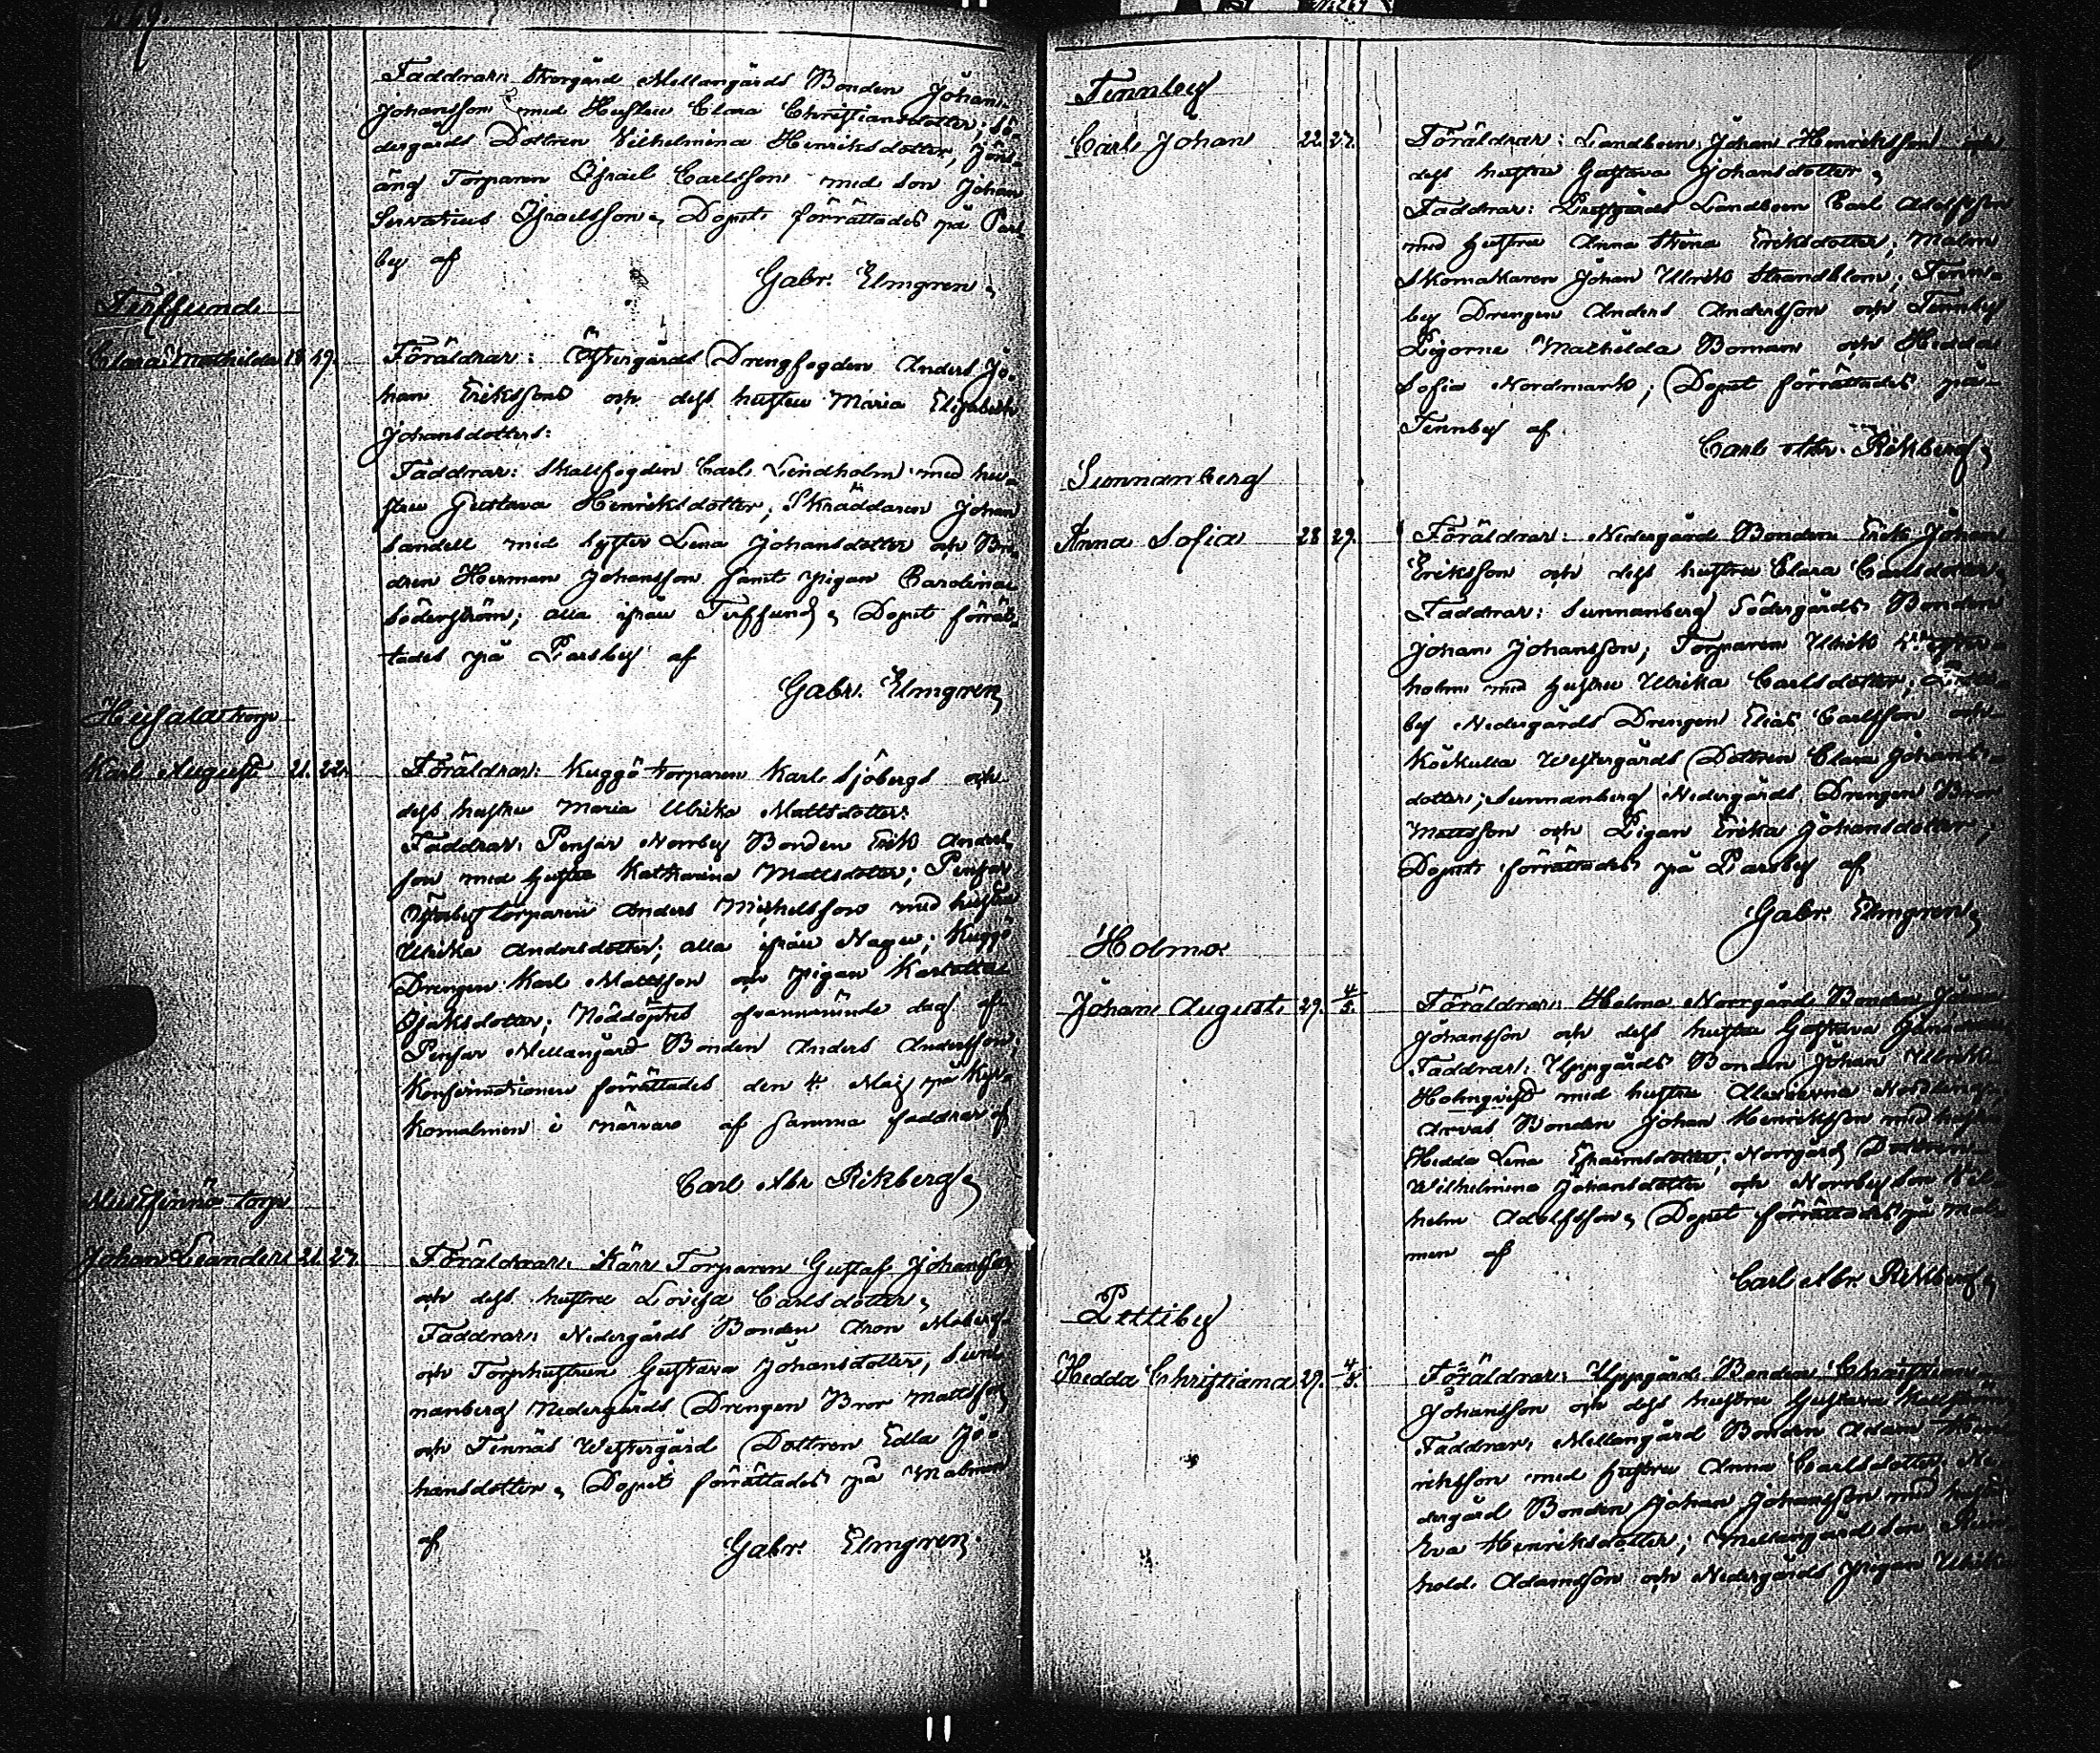 Faddrar: Storgård Mellangårds Bonden Johan
Johansson med Hustru Clara Christiansdotter; Sö-
dergårds Dottren Wilhelmina Henriksdotter,
äng Torparen Israel Carlsson med son Johan
Servatius Israelsson. Dopet förrättades på Pars-
by af
Gabr. Elmgren.
Terfsund
Clara Mathilda 18 19.
Föräldrar: Östergårds Drengfogden Anders Jo-
han Eriksson och dess hustru Maria Elisabeth
Johansdotter:
Faddrar: Skallfogden Carl Lindholm med hu-
stru Gustava Henriksdotter; Skräddaren Johan
Sandell med syster Lena Johansdotter och Bro-
dren Herman Johansson samt pigan Carolina
Söderström; alla ifrån Terfsund. Dopet förrät-
tades på Parsby af
Gabr. Elmgren
torp
Karl August 21. 22.
Föräldrar: Kuggö torparen Karl Sjöbergs och
dess hustru Maria Ulrika Mattsdotter.
Faddrar: Pensar Norrby Bonden Erik Anders-
son med hustru Katharina Mattsdotter; Pensar
torparen Anders Mickelsson med hustru
Ulrika Andersdotter; alla ifrån Nagu; Kuggö
Drengen Karl Mattsson och pigan Karlotta
Isaksdotter; Nöddöptes ofvannämnde dag af
Pensar Mellangård Bonden Anders Andersson,
Konfirmationen förrättades den 4 Maj på Kyr-
komalmen i närvaro af samma faddrar af
Carl Abr Rikberg.
torp
Johan Leander 21. 27.
Föräldrar: Kärr Torparen Gustaf Johansson
och dess hustru Lovisa Carlsdotter.
Faddrar: Nedergårds Bonden Aron Moberg
och Torphustrun Gustava Johansdotter, Sun-
nanberg Nedergårds Drengen Bror Mattsson
och Tennäs Westergård Dottren Edla Jo-
hansdotter. Dopet förrättades på Malmen
af Gabr. Elmgren.
Tennby
Carl Johan 22. 27.
Föräldrar: Landboen Johan Henriksson och
dess hustru Gustava Johansdotter.
Faddrar: Prestgårds Landboen Carl Adolfsson
med hustru Anna Stina Eriksdotter; Malm
Skomakaren Johan Ulrik Strandblom; Tenn-
by Drengen Anders Andersson och Tennby
Pigorne Mathilda Boman och Hedda
Sofia Nordmark; Dopet förrättades på
Tennby af
Carl Abr. Rikberg.
Sunnanberg
Anna Sofia 28 29.
Föräldrar: Nedergård Bonden Erik Johan
Eriksson och dess hustru Clara Carlsdotter.
Faddrar: Sunnanberg Södergårds Bonden
Johan Johansson; Torparen Ulrik
holm med hustru Ulrika Carlsdotter;
by Nedergårds Drengen Elias Carlsson och
Westergårds Dottren Clara Johans-
dotter; Sunnanberg Nedergårds Drengen Bror
Mattsson och Pigan Erika Johansdotter;
Dopet förrättades på Parsby af
Gabr. Elmgren.
Holma
Johan August 29. 4/5.
Föräldrar: Holma Norrgårds Bonden
Johansson och dess hustru Gustava
Faddrar: Uppgårds Bonden Johan Ulrik
Holmqvist med hustru
Bonden Johan Henriksson med hustru
Hedda Lena Efraimsdotter; Norrgård Dottren
Wilhelmina Johansdotter och Norrby son Wil-
helm Adolfsson. Dopet förrättades på Mal-
men af
Carl Abr. Rikberg.
Pettiby
Hedda Christiana 29. 4/5.
Föräldrar: Uppgårds Bonden Christian
Johansson och dess hustru Gustava
Faddrar: Mellangård Bonden Adam Hen-
riksson med hustru Anna Carlsdotter; Ne-
dergård Bonden Johan Johansson med hustru
Eva Henriksdotter; Mellangårds son
hold Adamsson och Nedergårds pigan Ulrika